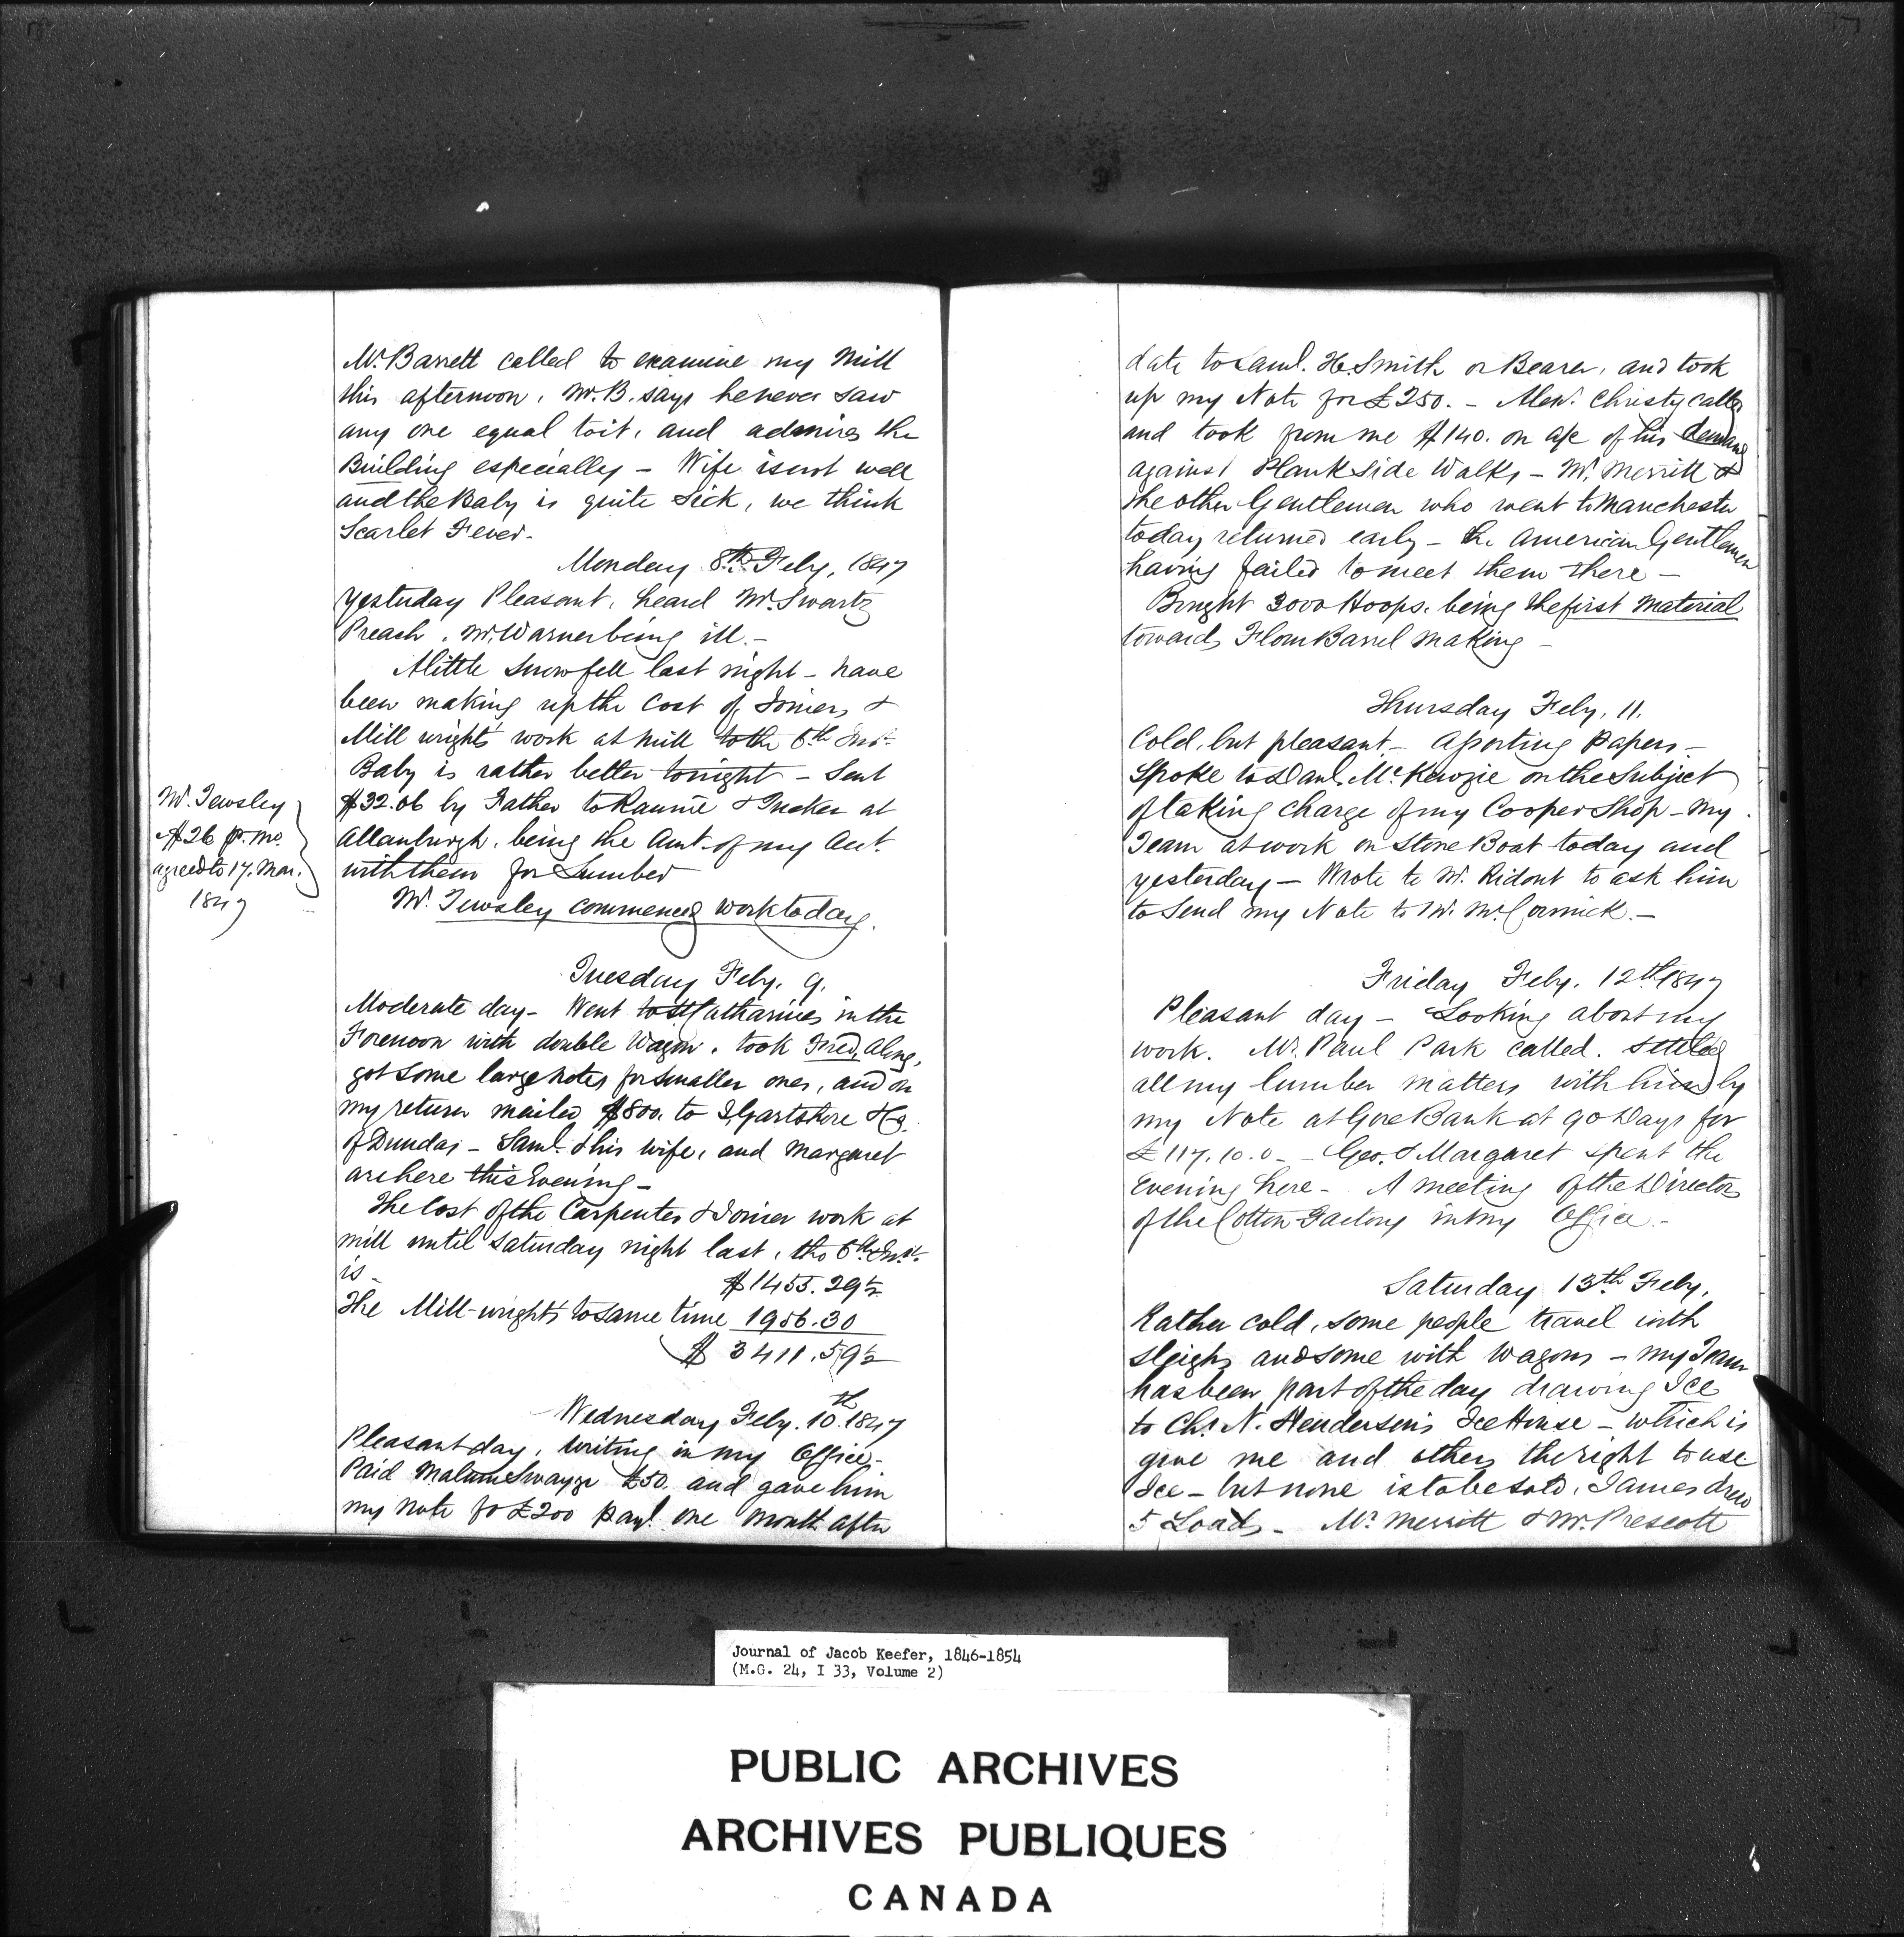 Mr. Barrett called to examine my Mill
this afternoon, Mr. B. says he never saw
any one equal to it, and admires the
Building especially – Wife is not well
and the Baby is quite sick, we think
Scarlet Fever.
Monday 8th Feby, 1847
Yesterday Pleasant, heard Mr. Swartz
Preach. Mr. Warner being ill.–
A little snow fell last night – have
been making up the Cost of Joiners &
Mill wrights work at Mill to the 6th Inst.
Baby is rather better tonight – Sent
$32.06 by Father to Rannie & Tucker at
Allanburgh, being the Amt. of my Act.
with them for Lumber
Mr. Tewsley commenced work today.
Mr. Tewsley
$26 pr. mo.
agreed to 17. Mar.
1847
Tuesday Feby. 9.
Moderate day – Went to St Catharines in the
Forenoon with double Wagon. took Fred, along,
got some large notes for smaller ones, and on
my return mailed $800. to J. Gartshore & Co.
of Dundas – Saml. & his wife, and Margaret
are here this Evening –
The Cost of the Carpenter & Joiner work at
mill until Saturday night last, the 6th Inst.
is –
$1455.29½
The Mill-wrights to same time 1956.30
$ 3411.59½
Wednesday Feby. 10th 1847
Pleasant day, writing in my Office –
Paid Malum Swayze £50. and gave him
my note for £200 payl. one month after
date to Saml. H. Smith or Bearer, and took
up my Note for £250. – Alexr. Christy called
and took from me $140. on a/c of his demand
against Plank Side Walks – Mr. Merritt &
the other Gentlemen who went to Manchester
today returned early – the American Gentlemen
having failed to meet them there –
Bought 3000 Hoops. being the first Material
towards Flour Barrel making –
Thursday Feby. 11.
Cold, but pleasant – Assorting Papers –
Spoke to Danl. McKenzie on the Subject
of taking charge of my Cooper Shop – My
Team at work on Stone Boat today and
yesterday – Wrote to Mr. Ridout to ask him
to Send my Note to Mr. McCormick. –
Friday Feby. 12th 1847
Pleasant day – Looking about my
work. Mr. Paul Park called. settled
all my lumber matters with him by
my Note at Gore Bank at 90 Days for
£117.10.0 – Geo. & Margaret spent the
Evening here – A meeting of the Directors
of the Cotton Factory in my Office –
Saturday 13th Feby.
Rather cold, some people travel with
sleighs and some with Wagons – my Team
has been part of the day drawing Ice
to Chs. N. Henderson's Ice House – which is
give me and others the right to use
Ice – but none is to be sold, James drew
5 Loads – Mr. Merritt & Mr. Prescott
Journal of Jacob Keefer, 1846-1854
(M.G. 24, I 33, Volume 2)
PUBLIC ARCHIVES
ARCHIVES PUBLIQUES
CANADA